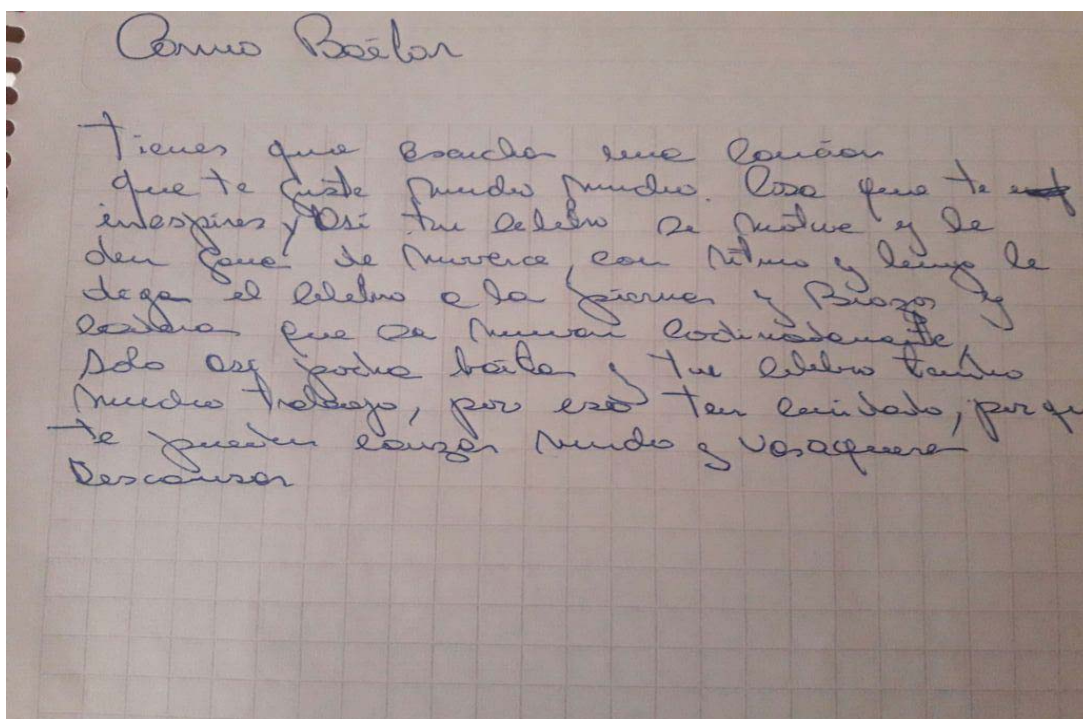 Como Bailar
Tienes que escucha una canción
que te guste mucho mucho. Cosa que te
inespires y así tu celebro se motive y le
den gana de moverce, con ritmo y luego le
diga el celebro a la piernas y Brazos y
caderas que se muevan codinadamente,
solo asy podra bailar y tu celebro tendra
mucho trabajo, por eso ten cuidado, porque
te pueden canzar mucho y vas a querer
Descansar